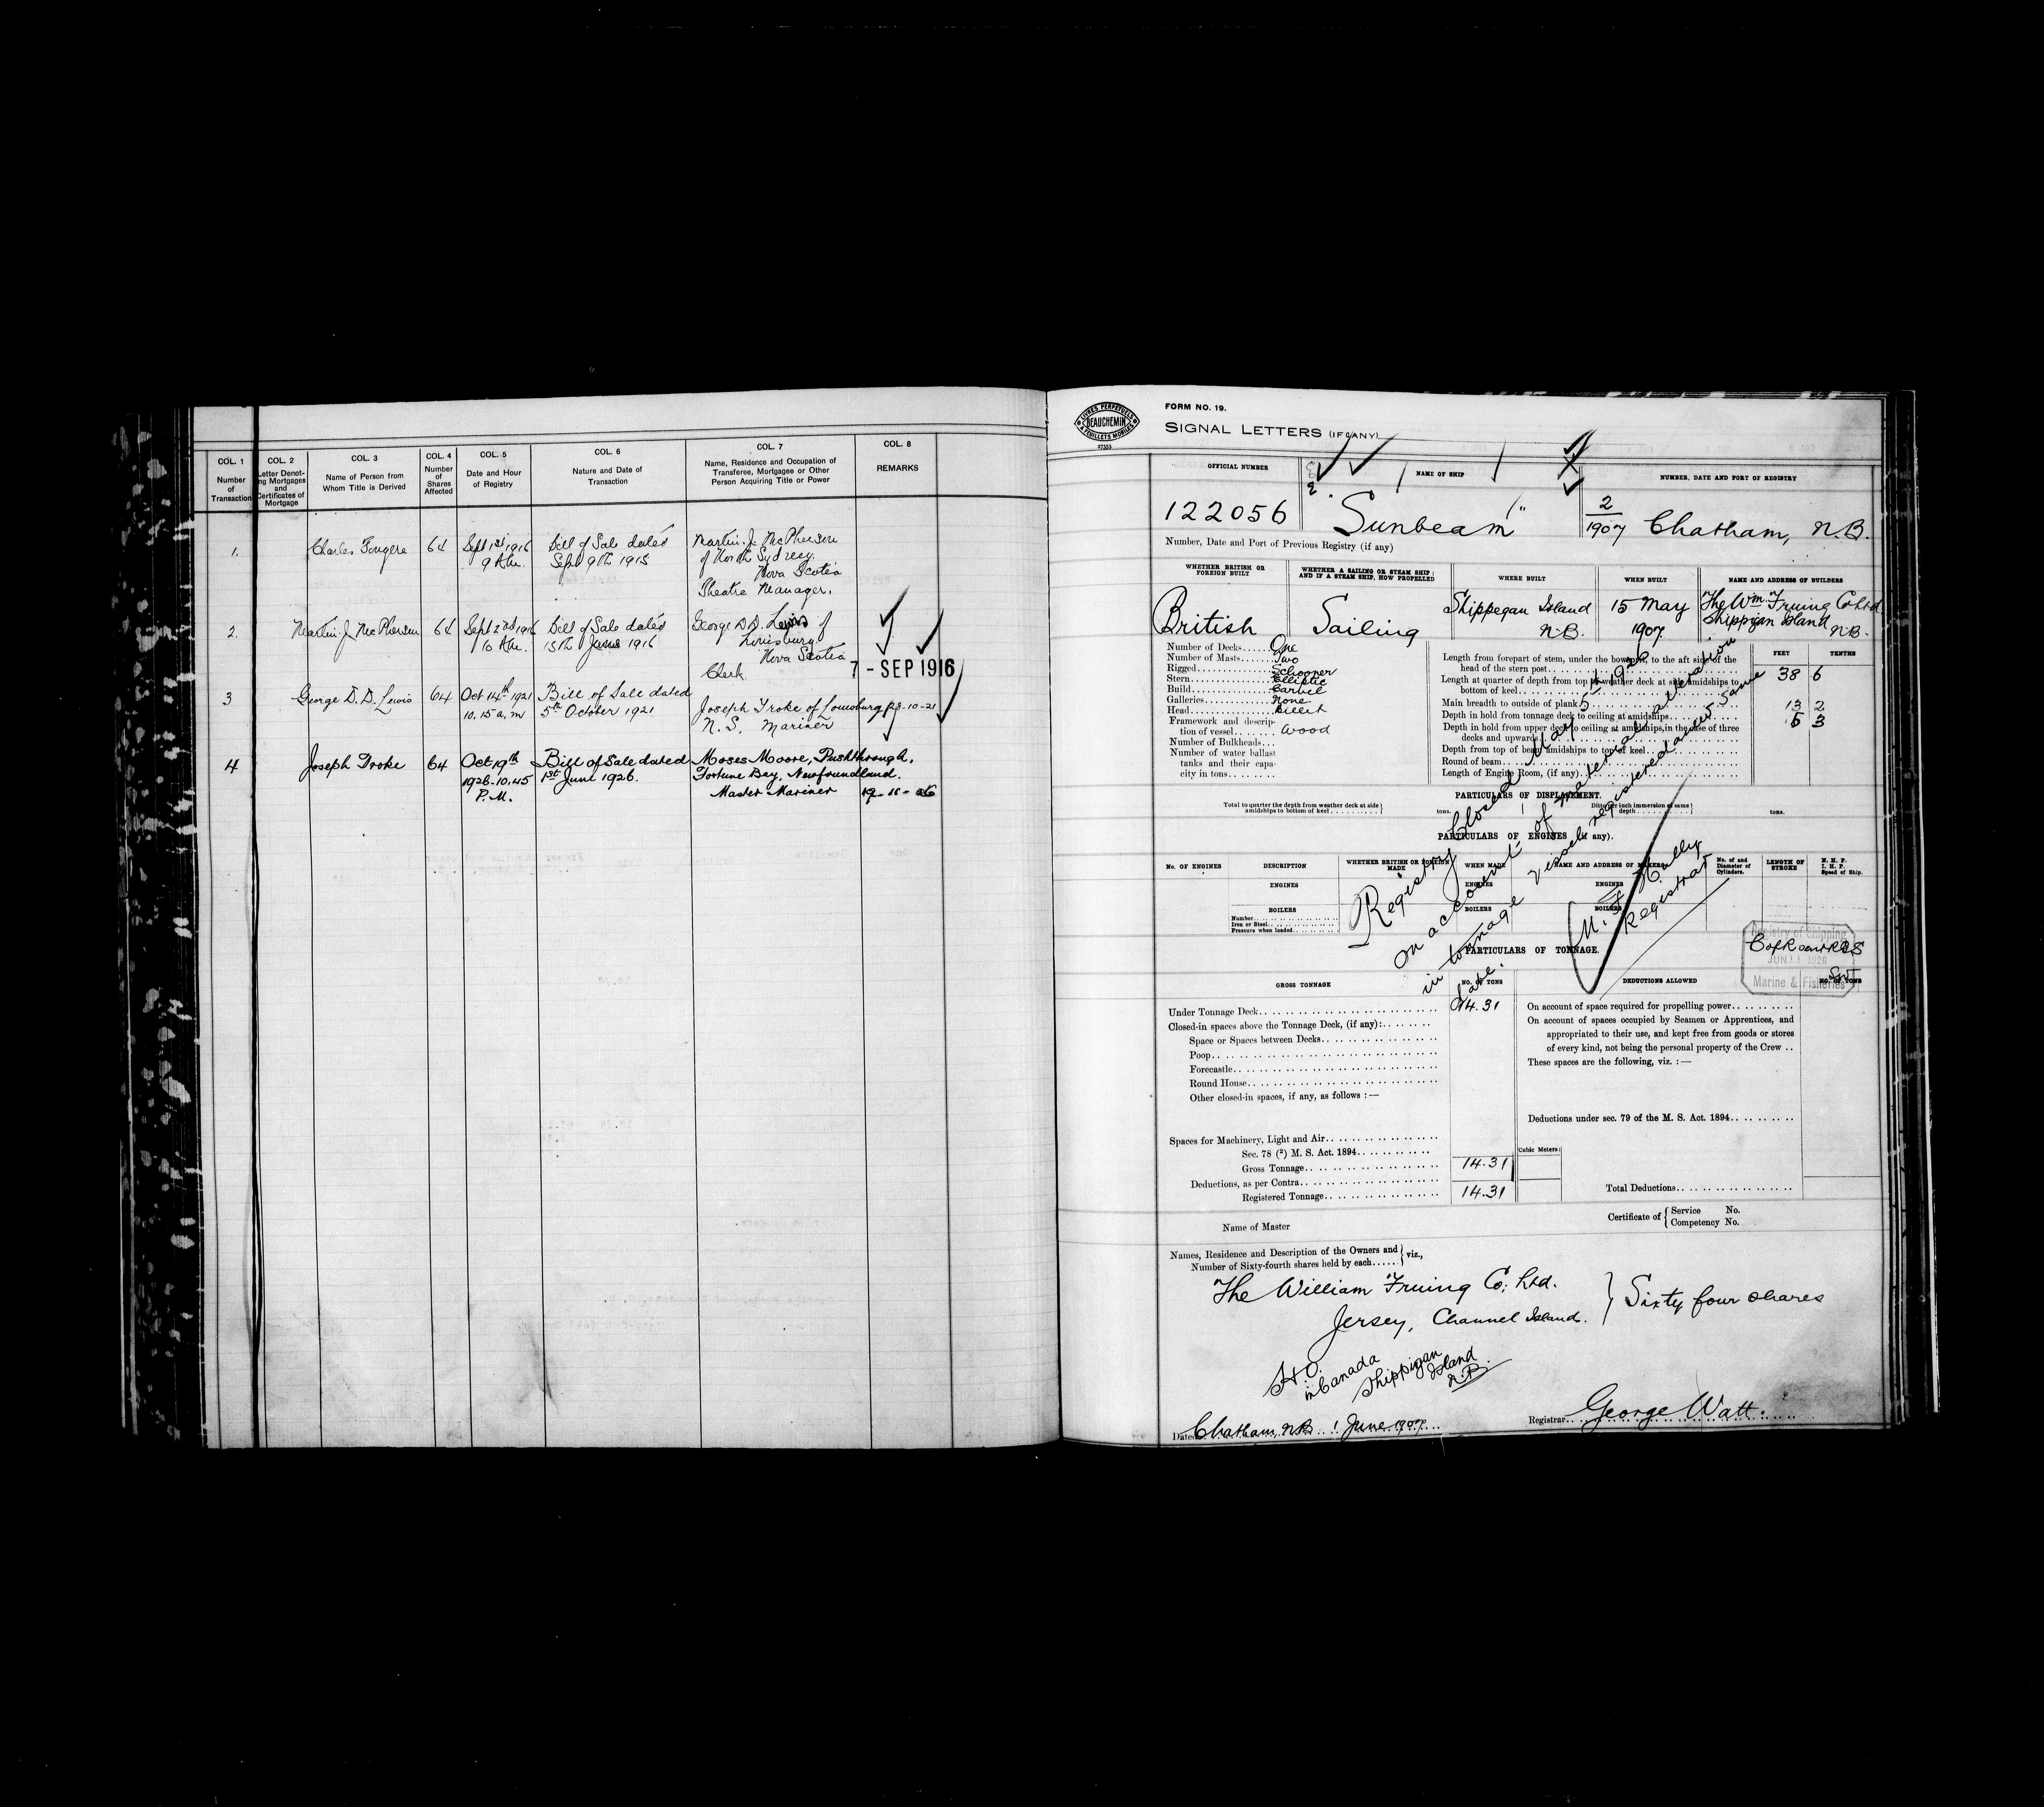 COL. 1
Number
of
Transaction
COL. 2
Letter Denot-
ing Mortgages
and
Certificates of
Mortgage
COL. 3
Name of Person from
Whom Title is Derived
COL. 4
Number
of
Shares
Affected
COL. 5
Date and Hour
of Registry
COL. 6
Nature and Date of
Transaction
COL. 7
Name, Residence and Occupation of
Transferee, Mortgagee or Other
Person Acquiring Title or Power
COL. 8
REMARKS
1.
Charles Fougere
64
Sept 1st 1916
9 A.m.
Bill of Sale dated
Sept 9th 1915
Martin. J. McPherson
of North Sydney.
Nova Scotia
Theatre Manager.
2.
Martin. J. McPherson
64
Sept 2nd 1916
10 A.m.
Bill of Sale dated
15th June 1916
George D.D. Lewis of
Louisburg.
Nova Scotia
Clerk
7-SEP 1916
3
George D. D. Lewis
64
Oct 14th 1921
10.15 a.m
Bill of Sale dated
5th October 1921
Joseph Troke of Louisburg
N. S. Mariner
28-10-21
4
Joseph Troke
64
Oct 19th
1926-10.45
P.M.
Bill of Sale dated
1st June 1926.
Moses Moore, Pushthrough,
Fortune Bay, Newfoundland.
Master Mariner
LIVRES PERPETUELS
BEAUCHEMIN
A FEUILLETS MOBILES
FORM NO. 19.
SIGNAL LETTERS (IF ANY)
OFFICIAL NUMBER
NAME OF SHIP
NUMBER, DATE AND PORT OF REGISTRY
122056
"Sunbeam"
2
1907 Chatham, N.B.
Number, Date and Port of Previous Registry (if any)
WHETHER BRITISH OR
FOREIGN BUILT
WHETHER A SAILING OR STEAM SHIP ;
AND IF A STEAM SHIP, HOW PROPELLED
WHERE BUILT
WHEN BUILT
NAME AND ADDRESS OF BUILDERS
British
Sailing
Shippegan Island
N.B.
15 May
1907
The Wm. Fruing Co Ltd
Shippigan Island
N.B.
Number of Decks One
Number of Masts Two
Rigged Schooner
Stern Elliptic
Build Carvel
Galleries None
Head Billet
Framework and descrip-
tion of vessel Wood
Number of Bulkheads
Number of water ballast
tanks and their capa-
city in tons
FEET TENTHS
Length from forepart of stem, under the bowsprit, to the aft side of the
head of the stern post 38 6
Length at quarter of depth from top of weather deck at side amidships to
bottom of keel
Main breadth to outside of plank 13 2
Depth in hold from tonnage deck to ceiling at amidships 5 3
Depth in hold from upper deck to ceiling at amidships, in the case of three
decks and upwards
Depth from top of beam amidships to top of keel
Round of beam
Length of Engine Room, (if any)
PARTICULARS OF DISPLACEMENT.
Total to quarter the depth from weather deck at side
amidships to bottom of keel
tons.
Ditto per inch immersion at same
depth
tons.
PARTICULARS OF ENGINES (if any).
No. OF ENGINES
DESCRIPTION
WHETHER BRITISH OR FOREIGN
MADE
WHEN MADE
NAME AND ADDRESS OF MAKERS
No. of and
Diameter of
Cylinders.
LENGTH OF
STROKE
N. H. P.
I. H. P.
Speed of Ship.
ENGINES
ENGINES
ENGINES
BOILERS
BOILERS
BOILERS
Number
Iron or Steel
Pressure when loaded
Registry Closed May 5th 1926
on account of material alteration
in tonnage vessel registered anew same
date.
Registrar
Registry of Shipping
JUN 11 1926
Marine & Fisheries
PARTICULARS OF TONNAGE.
GROSS TONNAGE
NO. OF TONS
DEDUCTIONS ALLOWED
NO. OF TONS
Under Tonnage Deck 14.31
Closed-in spaces above the Tonnage Deck, (if any):
Space or Spaces between Decks
Poop
Forecastle
Round House
Other closed-in spaces, if any, as follows :—
Spaces for Machinery, Light and Air
Sec. 78 (2) M. S. Act. 1894
Gross Tonnage 14.31
Deductions, as per Contra
Registered Tonnage 14.31
On account of space required for propelling power
On account of spaces occupied by Seamen or Apprentices, and
appropriated to their use, and kept free from goods or stores
of every kind, not being the personal property of the Crew
These spaces are the following, viz. :—
Deductions under sec. 79 of the M. S. Act. 1894
Cubic Meters:
Total Deductions
Name of Master
Certificate of { Service No.
Competency No.
Names, Residence and Description of the Owners and
Number of Sixty-fourth shares held by each } viz.,
The William Fruing Co; Ltd.
Jersey, Channel Island. } Sixty four shares
H.O.
in Canada
Shippigan
Island
N.B.
Dated Chatham, N.B. 1 June 1907
Registrar George Watt.